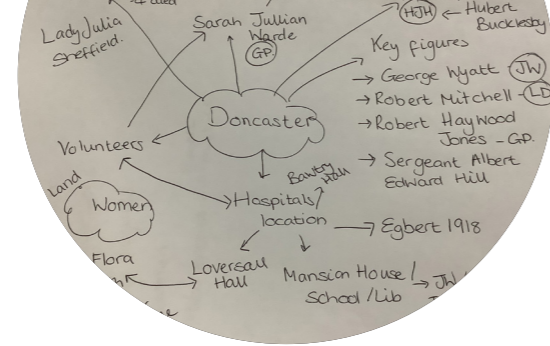 Lady Julia
Sheffield.
Sarah Jullian
Warde
GP
HJH ← Hubert
Bucklesby
Key figures
→ George Wyatt JW
→ Robert Mitchell - LD
→ Robert Haywood
Jones - GP.
→ Sergeant Albert
Edward Hill
Doncaster
Volunteers
Land
Women
Bawtry
Hall
Hospitals/
location
→ Egbert 1918
Flora
Loversall
Hall
Mansion House /
School / Lib
→ JW